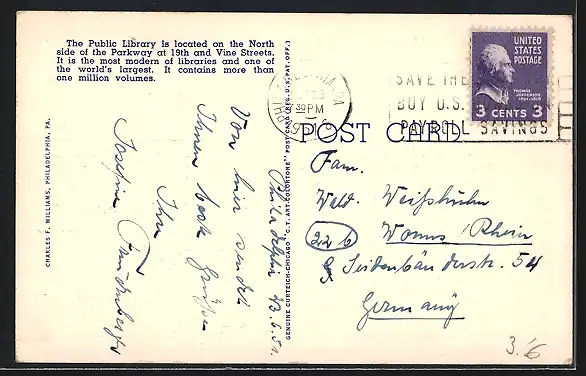 The Public Library is located on the North
side of the Parkway at 19th and Vine Streets.
It is the most modern of libraries and one of
the world's largest. It contains more than
one million volumes.
CHARLES F. WILLIAMS, PHILADELPHIA, PA.
Philadelphia
Von hier sendet
Ihnen beste Grüße
Ihre
Josefine
GENUINE CURTEICH-CHICAGO "C. T. ART-COLORTONE" POST CARD (REG. U. S. PAT. OFF.)
POST CARD
PHILA PA
30PM
SAVE THE
BUY U.S.
PAYROLL SAVINGS
UNITED
STATES
POSTAGE
THOMAS
JEFFERSON
3 CENTS 3
Fam.
Wald. Weißhuhn
22b Worms / Rhein
Seidenbänderstr. 54
Germany
3.‘6